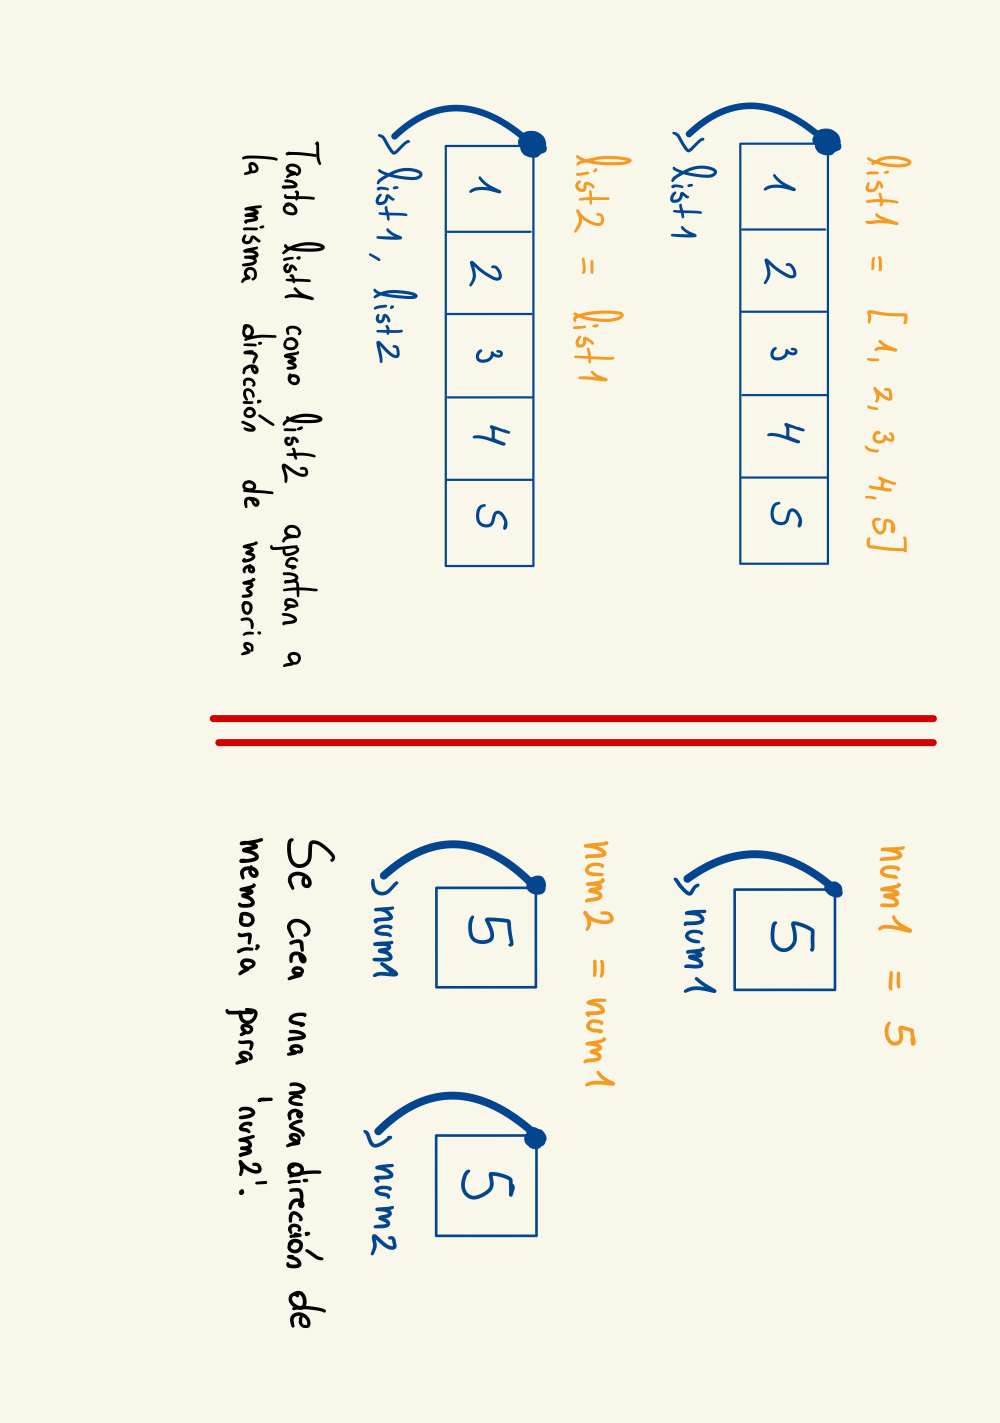 list1 = [ 1, 2, 3, 4, 5]
1 2 3 4 5
list1
list2 = list1
1 2 3 4 5
list1, list2
Tanto list1 como list2 apuntan a
la misma dirección de memoria
num1 = 5
5
num1
num2 = num1
5 5
num1 num2
Se crea una nueva dirección de
memoria para 'num2'.